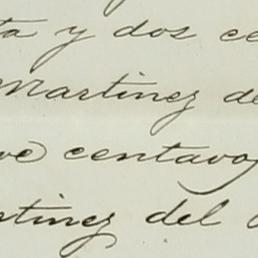 ta y dos ce
Martinez de
ve centavos
rtinez del